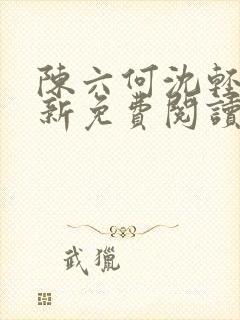 陳六何沈輕
新免費閱讀
武獵